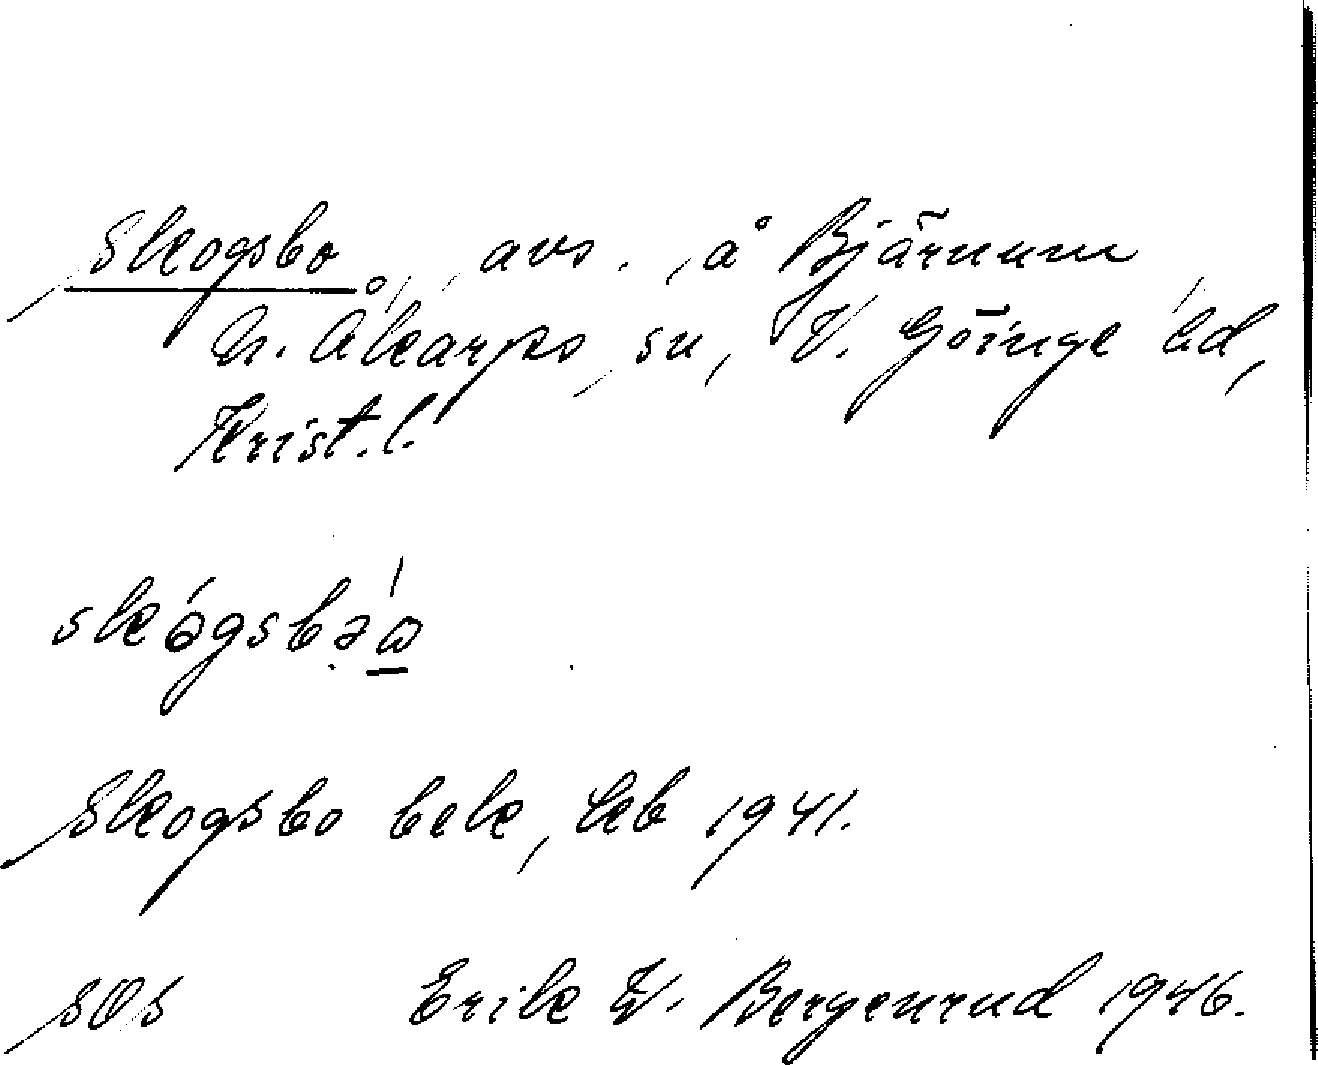 Skogsbo, avs. å Bjärnum
N. Åkarps sn, V. Göinge hd,
Krist. l.
skógsbəω
Skogsbo bek, kb 1941.
SOS Erik W. Bergenrud 1946.